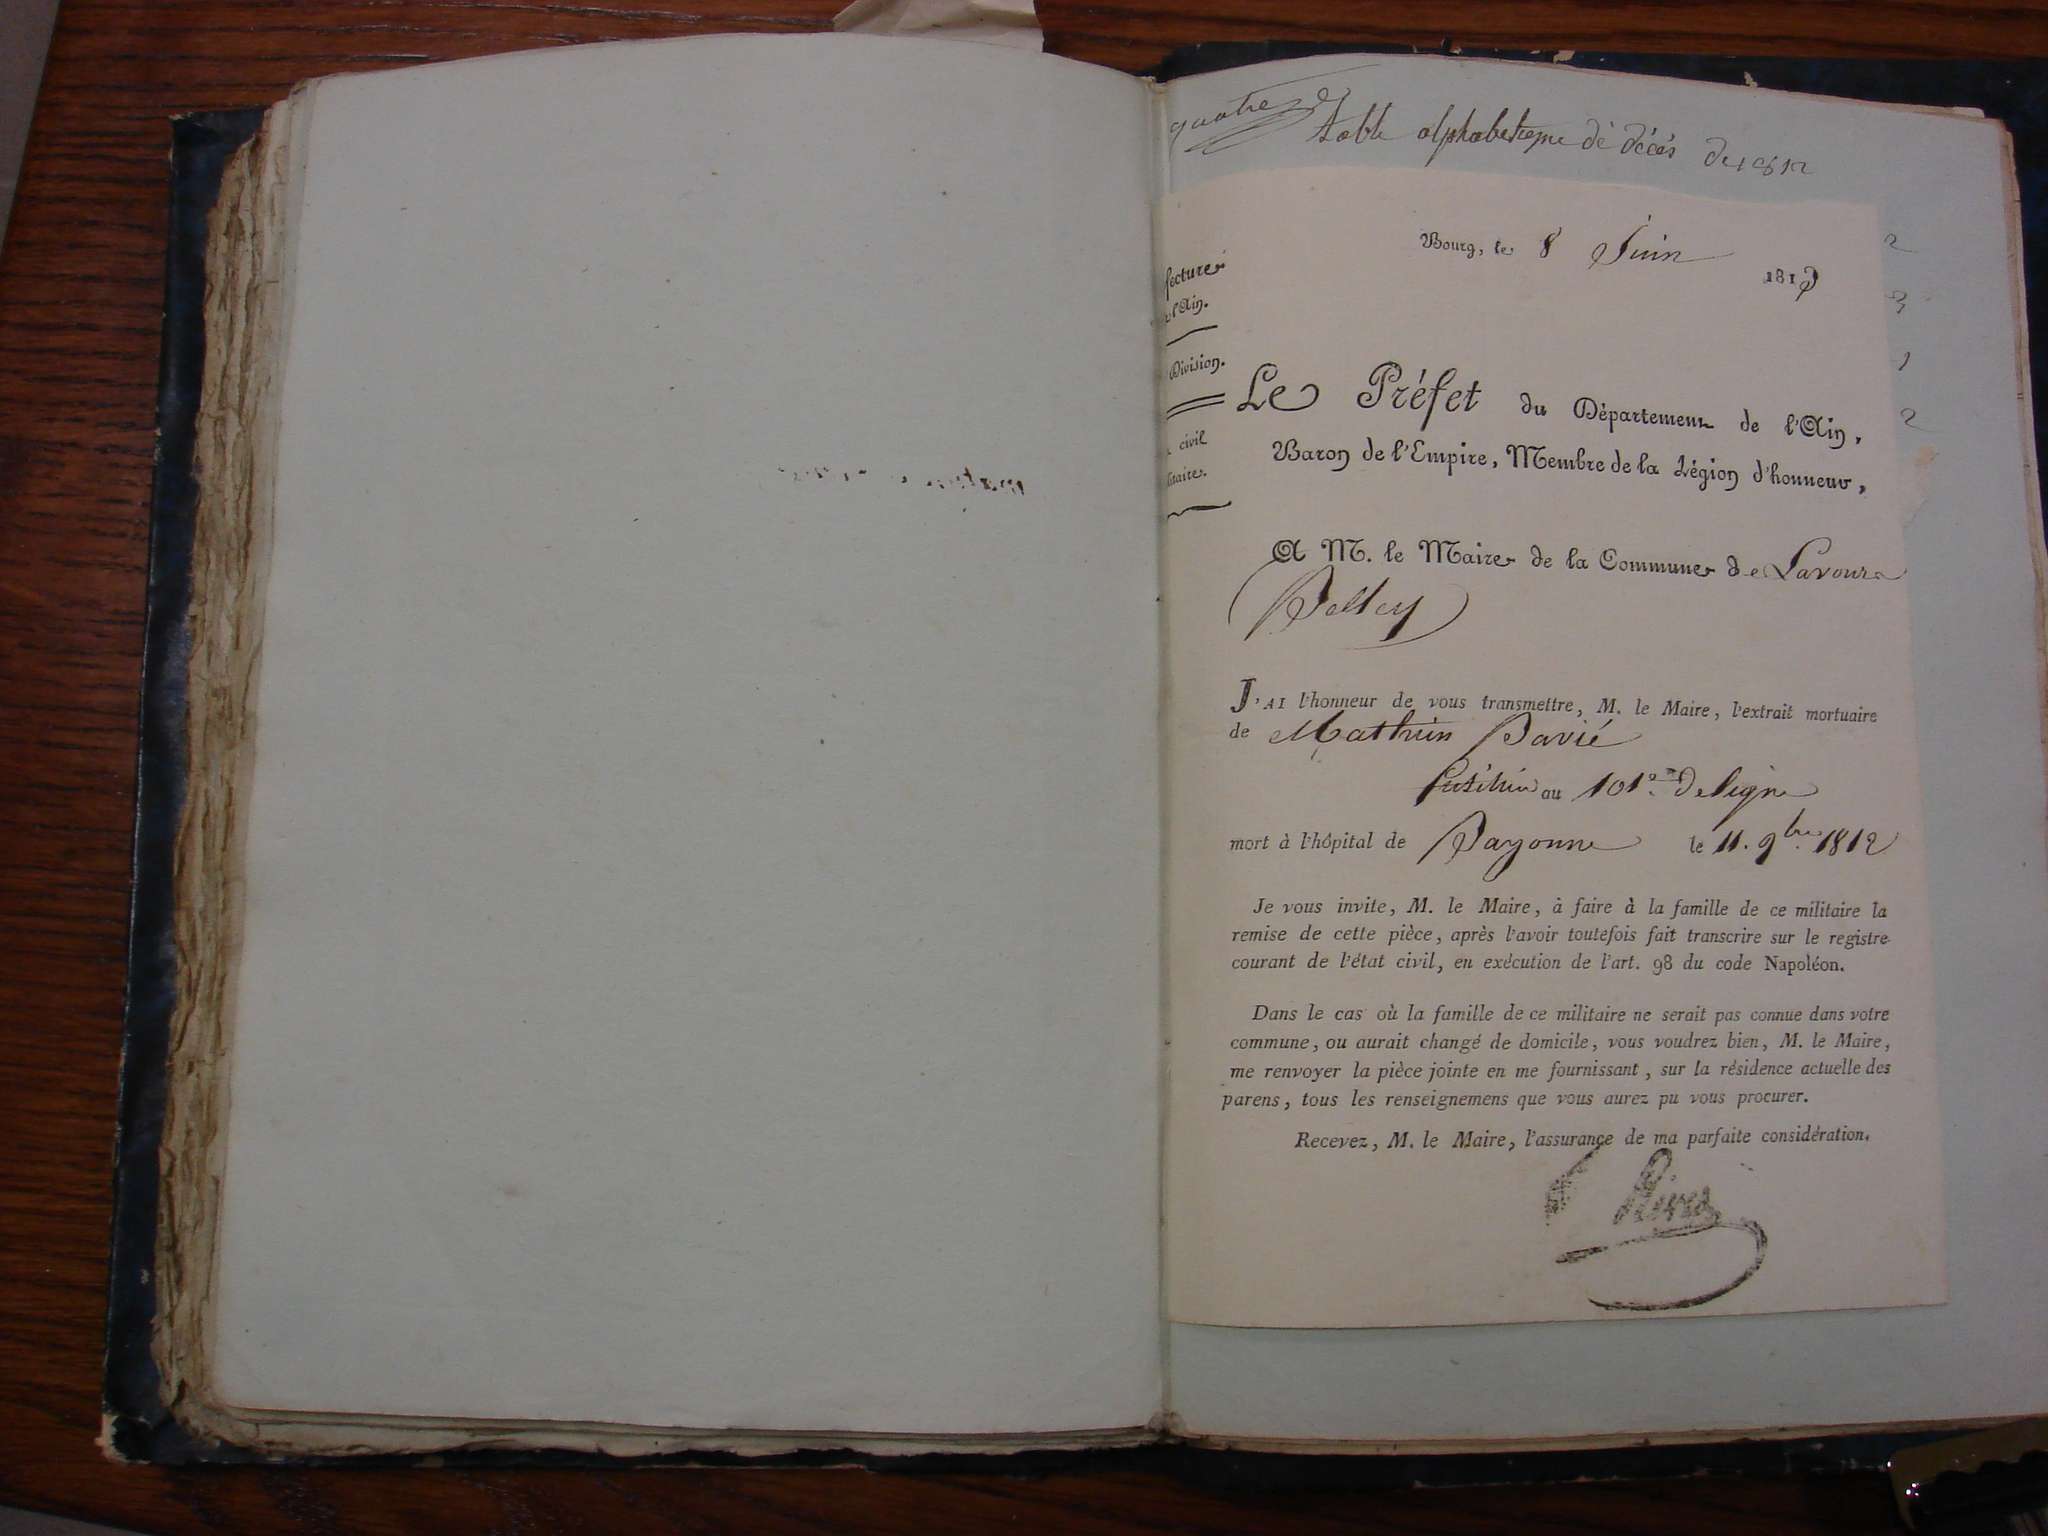 quatre
table alphabetique de décès de 1812
Bourg, le 8 Juin 1813
fecture
l'Ain.
Division.
civil
litaire.
Le Préfet du Département de l'Ain,
Baron de l'Empire, Membre de la Légion d'honneur,
A M. le Maire de la Commune de Lavours
Belley
J'AI l'honneur de vous transmettre, M. le Maire, l'extrait mortuaire
de Mathieu Pavié
fusilier au 101e. De ligne
mort à l'hôpital de Bayonne le 11. 9bre. 1812
Je vous invite, M. le Maire, à faire à la famille de ce militaire la
remise de cette pièce, après l'avoir toutefois fait transcrire sur le registre
courant de l'état civil, en exécution de l'art. 98 du code Napoléon.
Dans le cas où la famille de ce militaire ne serait pas connue dans votre
commune, ou aurait changé de domicile, vous voudrez bien, M. le Maire,
me renvoyer la pièce jointe en me fournissant, sur la résidence actuelle des
parens, tous les renseignemens que vous aurez pu vous procurer.
Recevez, M. le Maire, l'assurance de ma parfaite considération.